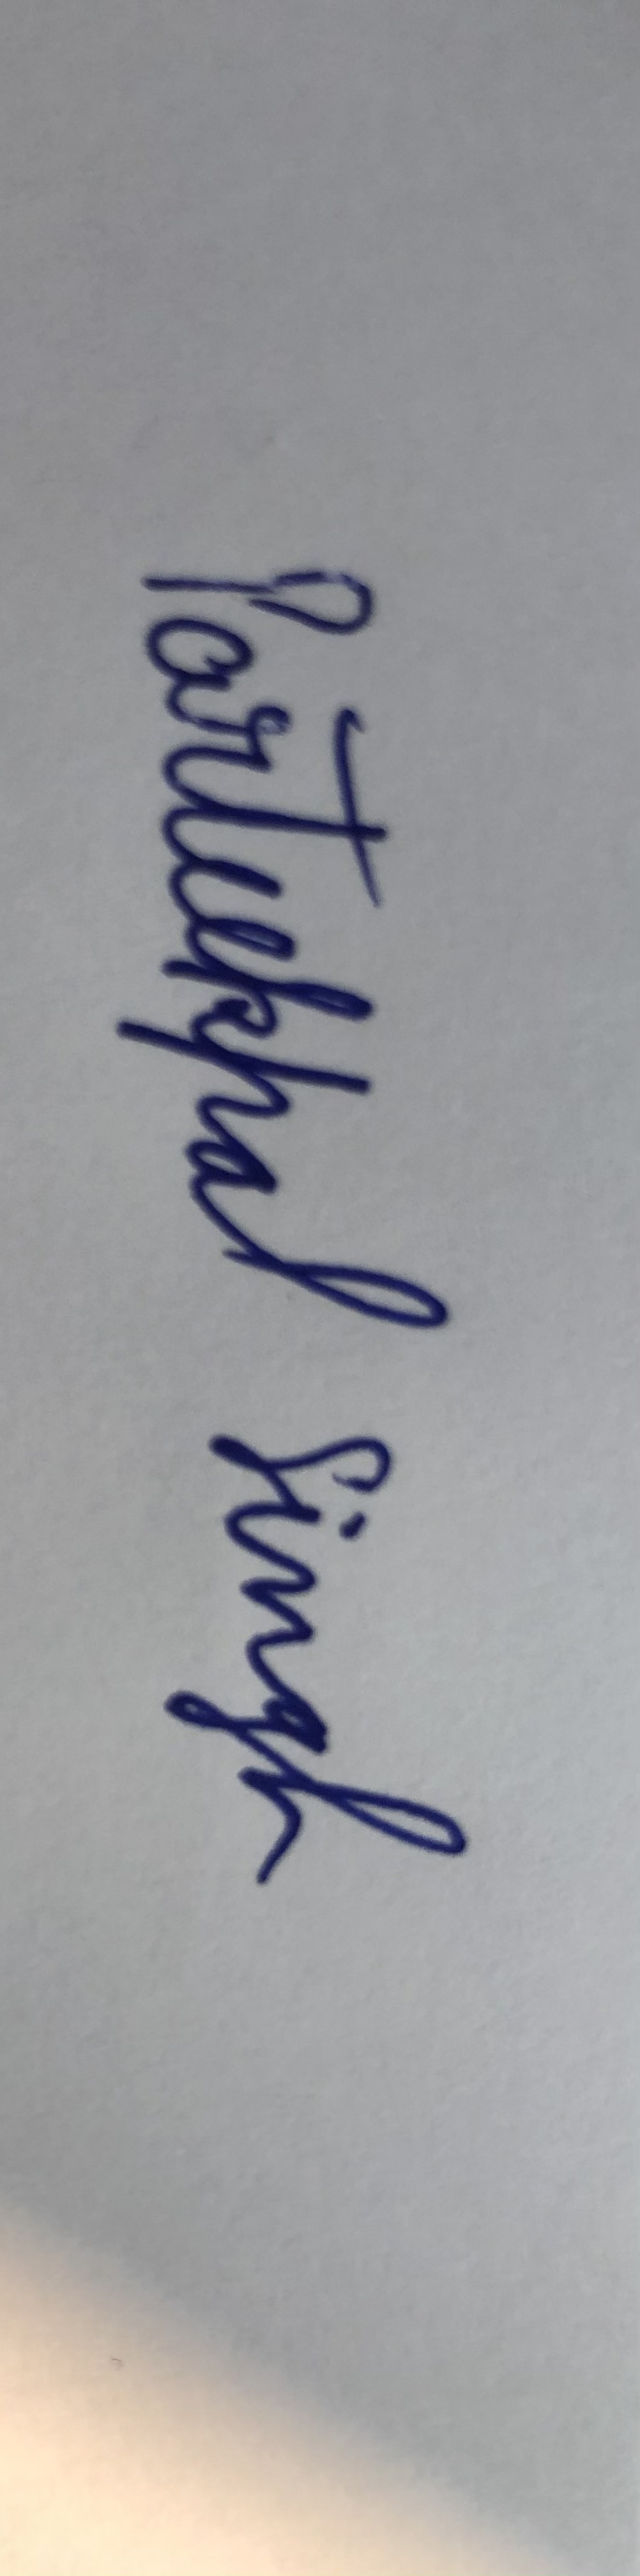 Parteekpal Singh